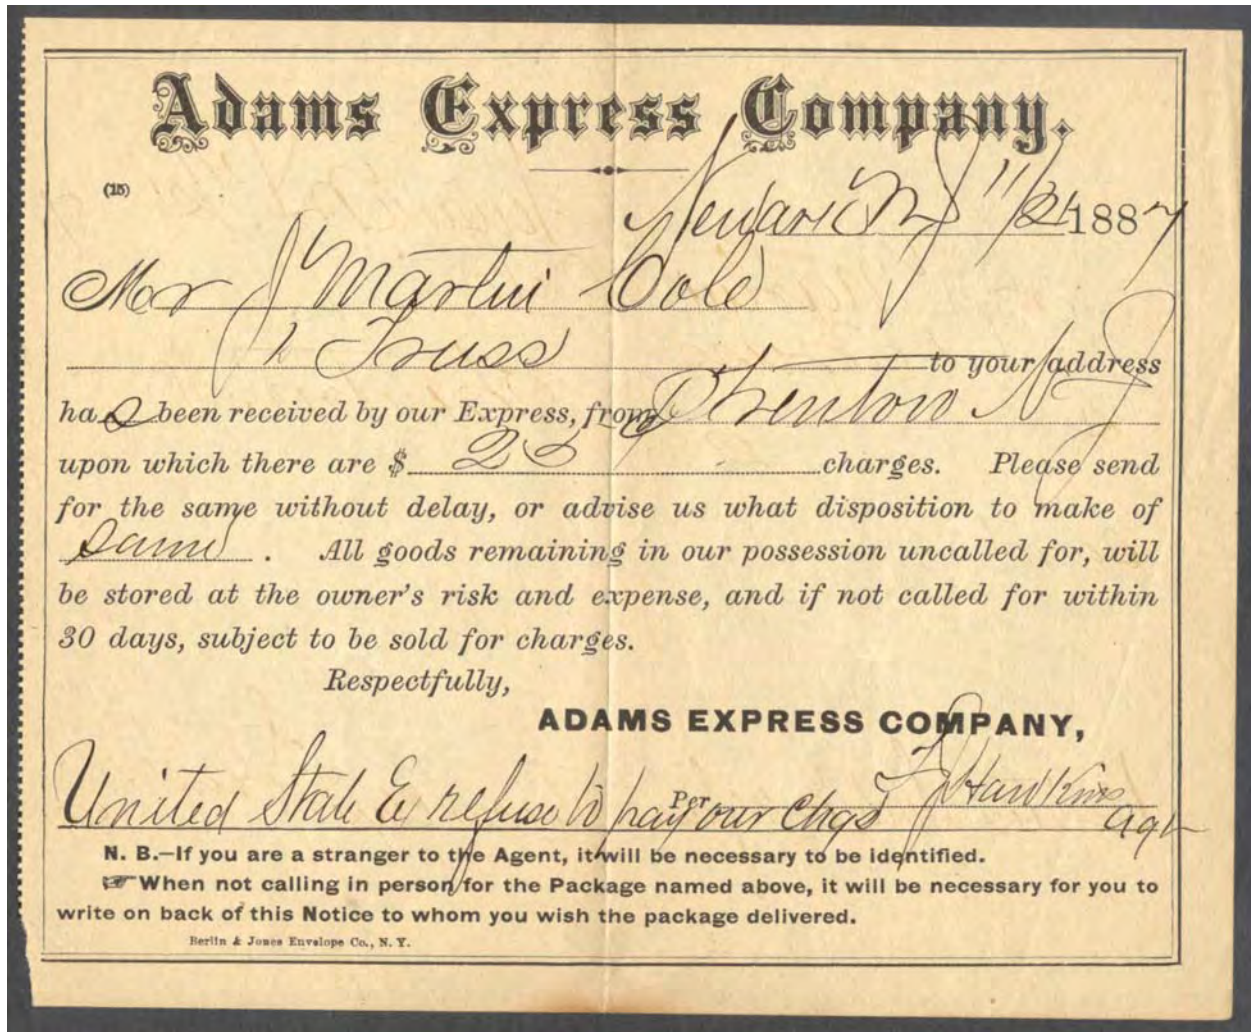 Adams Express Company.
(15)
Newark N J 11/21 1887
Mr J Martin Cole
1 Truss to your address
has been received by our Express, from Trenton N J
upon which there are $ 25 charges. Please send
for the same without delay, or advise us what disposition to make of
same . All goods remaining in our possession uncalled for, will
be stored at the owner's risk and expense, and if not called for within
30 days, subject to be sold for charges.
Respectfully,
ADAMS EXPRESS COMPANY,
Per F J Hawkins
United State Ex refuse to pay our Chgs agt
N. B.—If you are a stranger to the Agent, it will be necessary to be identified.
☞ When not calling in person for the Package named above, it will be necessary for you to
write on back of this Notice to whom you wish the package delivered.
Berlin & Jones Envelope Co., N. Y.